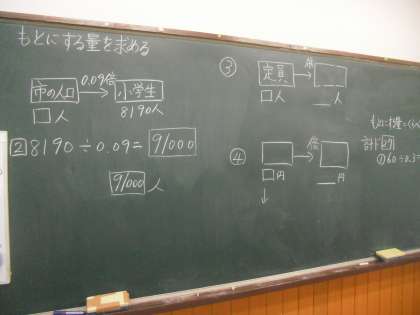 もとにする量を求める
市の人口 0.09倍 小学生
□人 8190人
2 8190÷0.09= 91000
91000 人
③ 定員 倍
□人 __人
④ 倍
□円 __円
↓
計ド
①60÷0.3